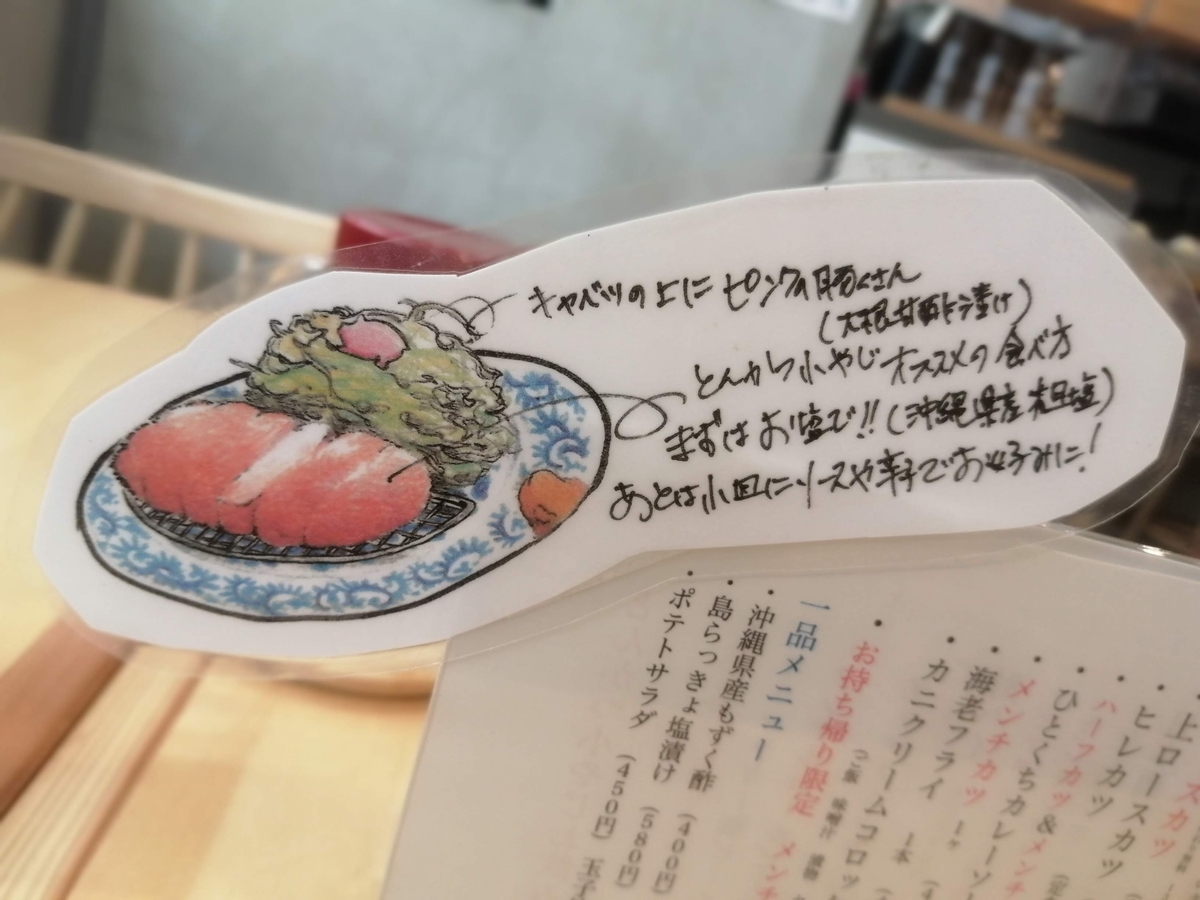 キャベツの上に ピンクの豚くさん
(大根甘酢漬け)
とんかつ小やじ オススメの食べ方
まずはお塩で!!(沖縄県産粗塩)
あとは小皿にソースや辛子でお好みに!
スカツ
・上ロースカツ
・ヒレカツ
・ハーフカツ&メンチ
・ひとくちカレーソ
・メンチカツ 1ヶ
・海老フライ 1本
・カニクリームコロッ
・お持ち帰り限定 メンチ
(ご飯 味噌汁 漬物
一品メニュー
・沖縄県産もずく酢 (400円)
・島らっきょ塩漬け (580円)
・ポテトサラダ (450円) 玉子